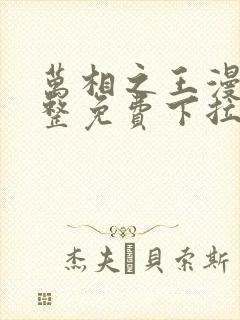 萬相之王漫
整免費下拉
杰夫·貝索斯